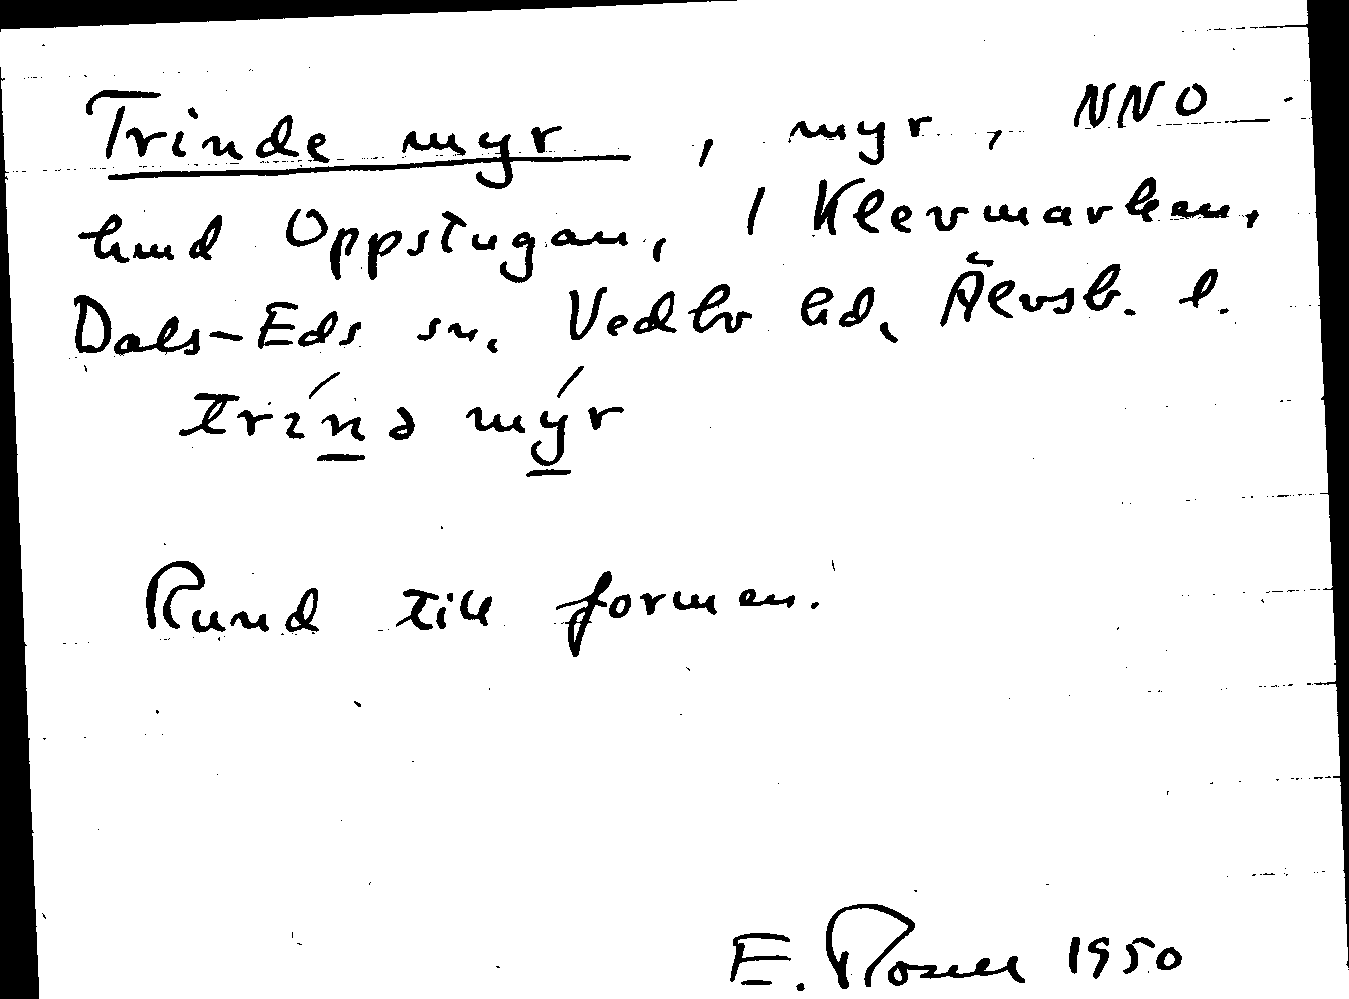 Trinde myr, myr, NNO
hmd Oppstugan, 1 Klevmarken,
Dals-Eds sn, Vedbo hd, Älvsb. l.
trínə mýr
Rund till formen.
E. Rosell 1950